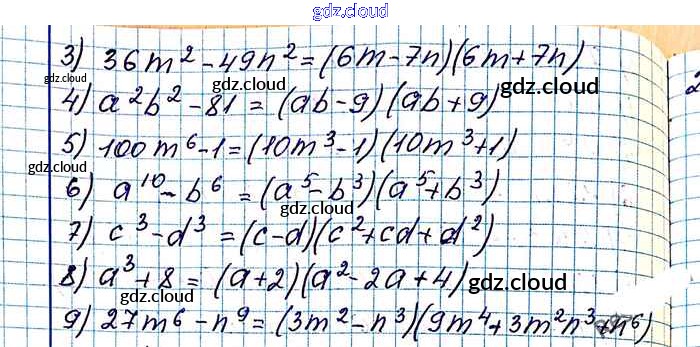 gdz.cloud
gdz.cloud
3) 36m² - 49n² = (6m - 7n)(6m + 7n)
gdz.cloud
4) a²b² - 81 = (ab - 9)(ab + 9)
gdz.cloud gdz.cloud
5) 100m⁶ - 1 = (10m³ - 1)(10m³ + 1)
gdz.cloud
6) a¹⁰ - b⁶ = (a⁵ - b³)(a⁵ + b³)
gdz.cloud
7) c³ - d³ = (c - d)(c² + cd + d²)
8) a³ + 8 = (a + 2)(a² - 2a + 4) gdz.cloud
gdz.cloud
9) 27m⁶ - n⁹ = (3m² - n³)(9m⁴ + 3m²n³ + n⁶)